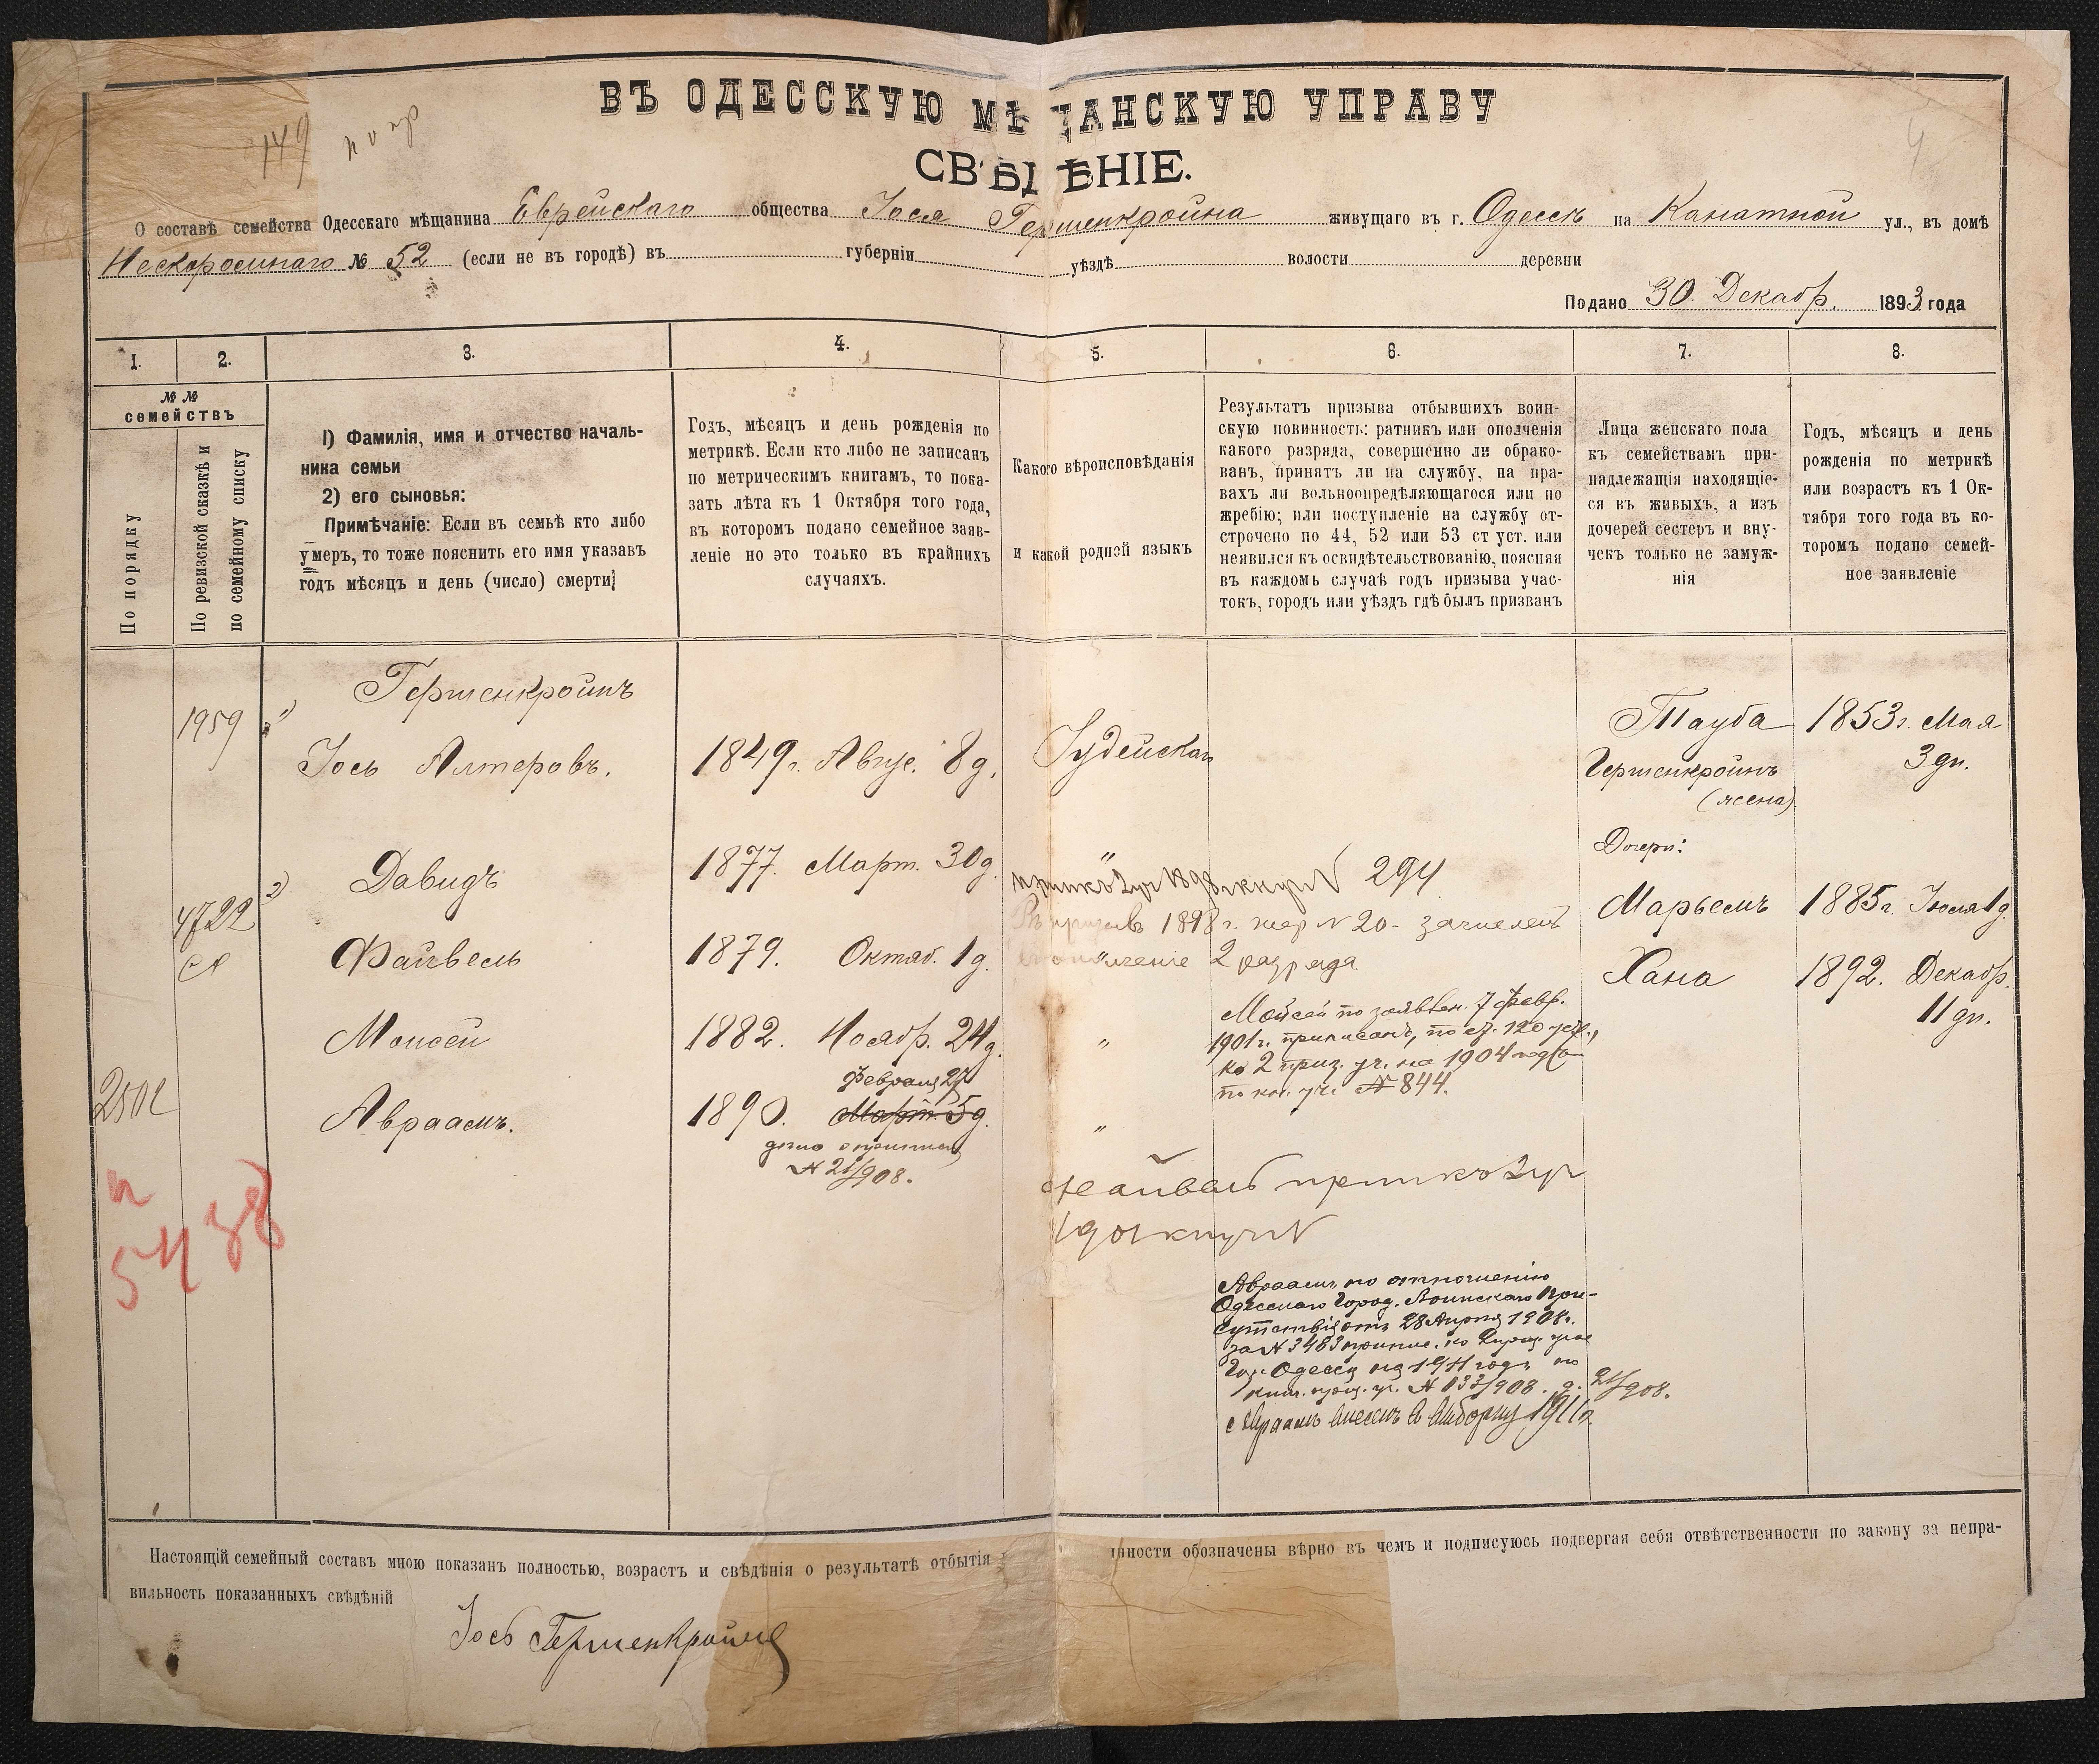 149
ВЪ ОДЕССКУЮ МѢЩАНСКУЮ УПРАВУ
4
СВѢДѢНІЕ.
О составѣ семейства Одесскаго мѣщанина Еврейскаго общества Іося Гершенкройна живущаго въ г. Одессѣ на Канатной ул., въ домѣ
№ 52 (если не въ городѣ) въ губерніи уѣздѣ волости деревни
Подано 30 Декабр. 1893 года
1. 2. 3. 4. 5. 6. 7. 8.
№ №
семействъ
По порядку
По ревизской сказкѣ и
по семейному списку
1) Фамилія, имя и отчество началь-
ника семьи
2) его сыновья:
Примѣчаніе: Если въ семьѣ кто либо
умеръ, то тоже пояснить его имя указавъ
годъ мѣсяцъ и день (число) смерти;
Годъ, мѣсяцъ и день рожденія по
метрикѣ. Если кто либо не записанъ
по метрическимъ книгамъ, то пока-
зать лѣта къ 1 Октября того года,
въ которомъ подано семейное заяв-
леніе но это только въ крайнихъ
случаяхъ.
Какого вѣроисповѣданія
и какой родной языкъ
Результатъ призыва отбывшихъ воин-
скую повинность: ратникъ или ополченія
какого разряда, совершенно ли обрако-
ванъ, принятъ ли на службу, на пра-
вахъ ли вольноопредѣляющагося или по
жребію; или поступленіе на службу от-
строчено по 44, 52 или 53 ст уст. или
неявился къ освидѣтельствованію, поясняя
въ каждомъ случаѣ годъ призыва учас-
токъ, городъ или уѣздъ гдѣ былъ призванъ
Лица женскаго пола
къ семействамъ при-
надлежащія находящіе-
ся въ живыхъ, а изъ
дочерей сестеръ и вну-
чекъ только не замуж-
нія
Годъ, мѣсяцъ и день
рожденія по метрикѣ
или возрастъ къ 1 Ок-
тября того года въ ко-
торомъ подано семей-
ное заявленіе
1959 1) Гершенкройнъ
Іось Алтеровъ. 1849 г. Авгус. 8 д. Іудейская
Тауба 1853 г. Мая
Гершенкройнъ 3 дн.
(жена).
Дочери:
4722 2) Давидъ 1877. Март. 30 д. " 294
Марьемъ 1885 г. Іюля 1 д.
1898 г. жер N 20 - зачисленъ
Файвель 1879. Октяб. 1 д. " ополченіе 2 разряда
Хана 1892. Декабр.
11 дн.
Моисей 1882. Ноябр. 24 д. "
Мойсей по заявлен. 7 Февр.
1901 г. приписанъ, по ст. 120 уст.,
ко 2 приз. уч. на 1904 годъ
по кн. уч. № 844.
Февраля 27
Авраамъ. 1890. Март. 5 д. "
дѣло о приписк
N 21/908.
5438
Файвель прип къ 2 уч
1901 кн уч N
Авраамъ по отношенію
Одесскаго Город. Воинскаго При-
сутствія отъ 28 Апрѣля 1908 г.
за N 3483 припис. ко 2 приз. уч
Гор. Одессы на 1911 годъ по
книг. приз. уч. N 133/908. д. 21/908.
Авраамъ внесенъ въ выборку 1911 г.
Настоящій семейный составъ мною показанъ полностью, возрастъ и свѣдѣнія о результатѣ отбытія нности обозначены вѣрно въ чемъ и подписуюсь подвергая себя отвѣтственности по закону за непра-
вильность показанныхъ свѣдѣній
Іось Гершенкройнъ